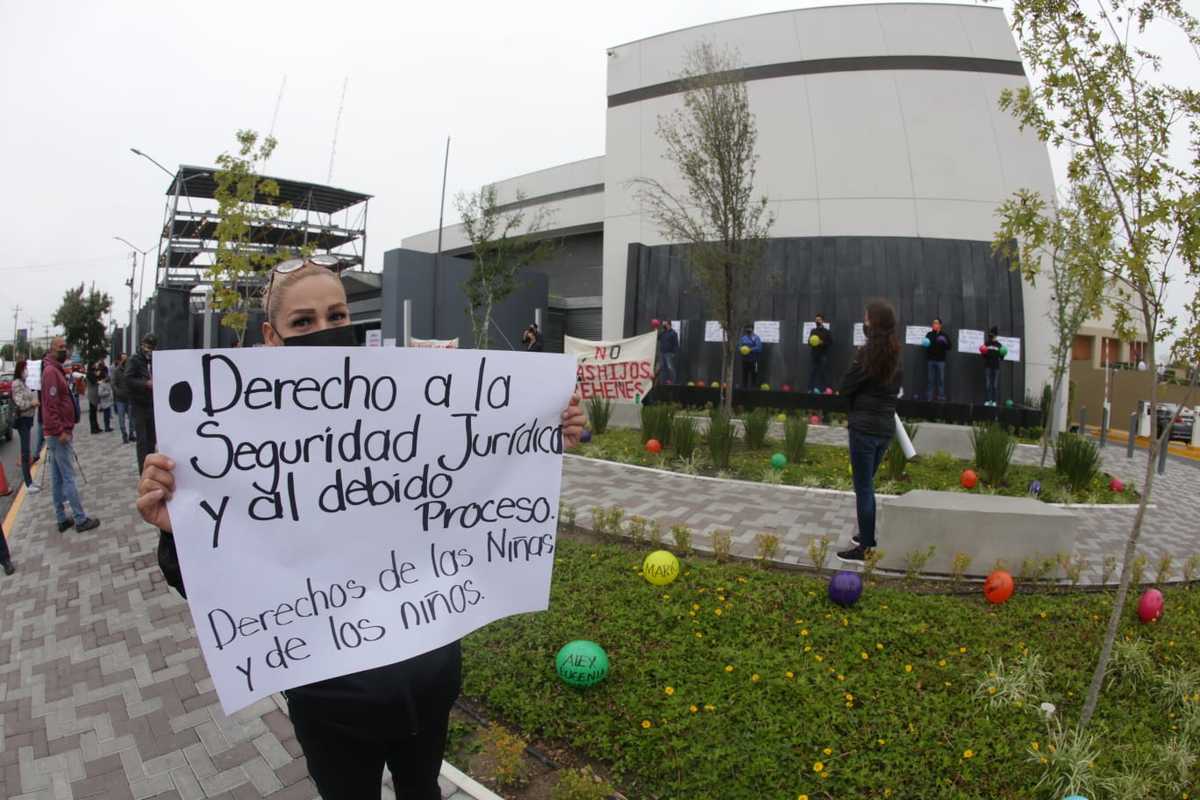 • Derecho a la
Seguridad Jurídica
y al debido
Proceso.
Derechos de las Niñas
y de los niños.
NO
HIJOS
REHENES
MARK
ALEY
EUGENIA